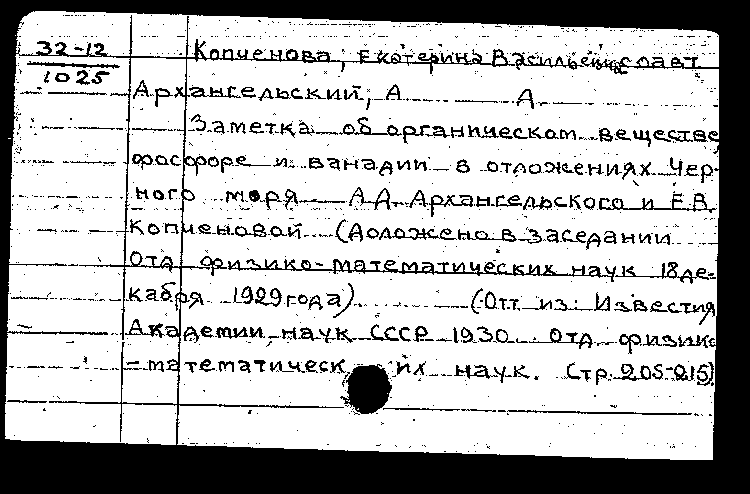 32-12
1025
Копченова, Екатерина Васильевна соавт
Архангельский, А А
Заметка об органическом веществе,
фосфоре и ванадии в отложениях Чер-
ного моря А.Д. Архангельского и Е.В.
Копченовой (Доложено в заседании
Отд физико-математических наук 18 де-
кабря 1929 года). (Отт из: Известия
Академии наук СССР 1930. Отд физико
-математических наук. Стр. 205-215)